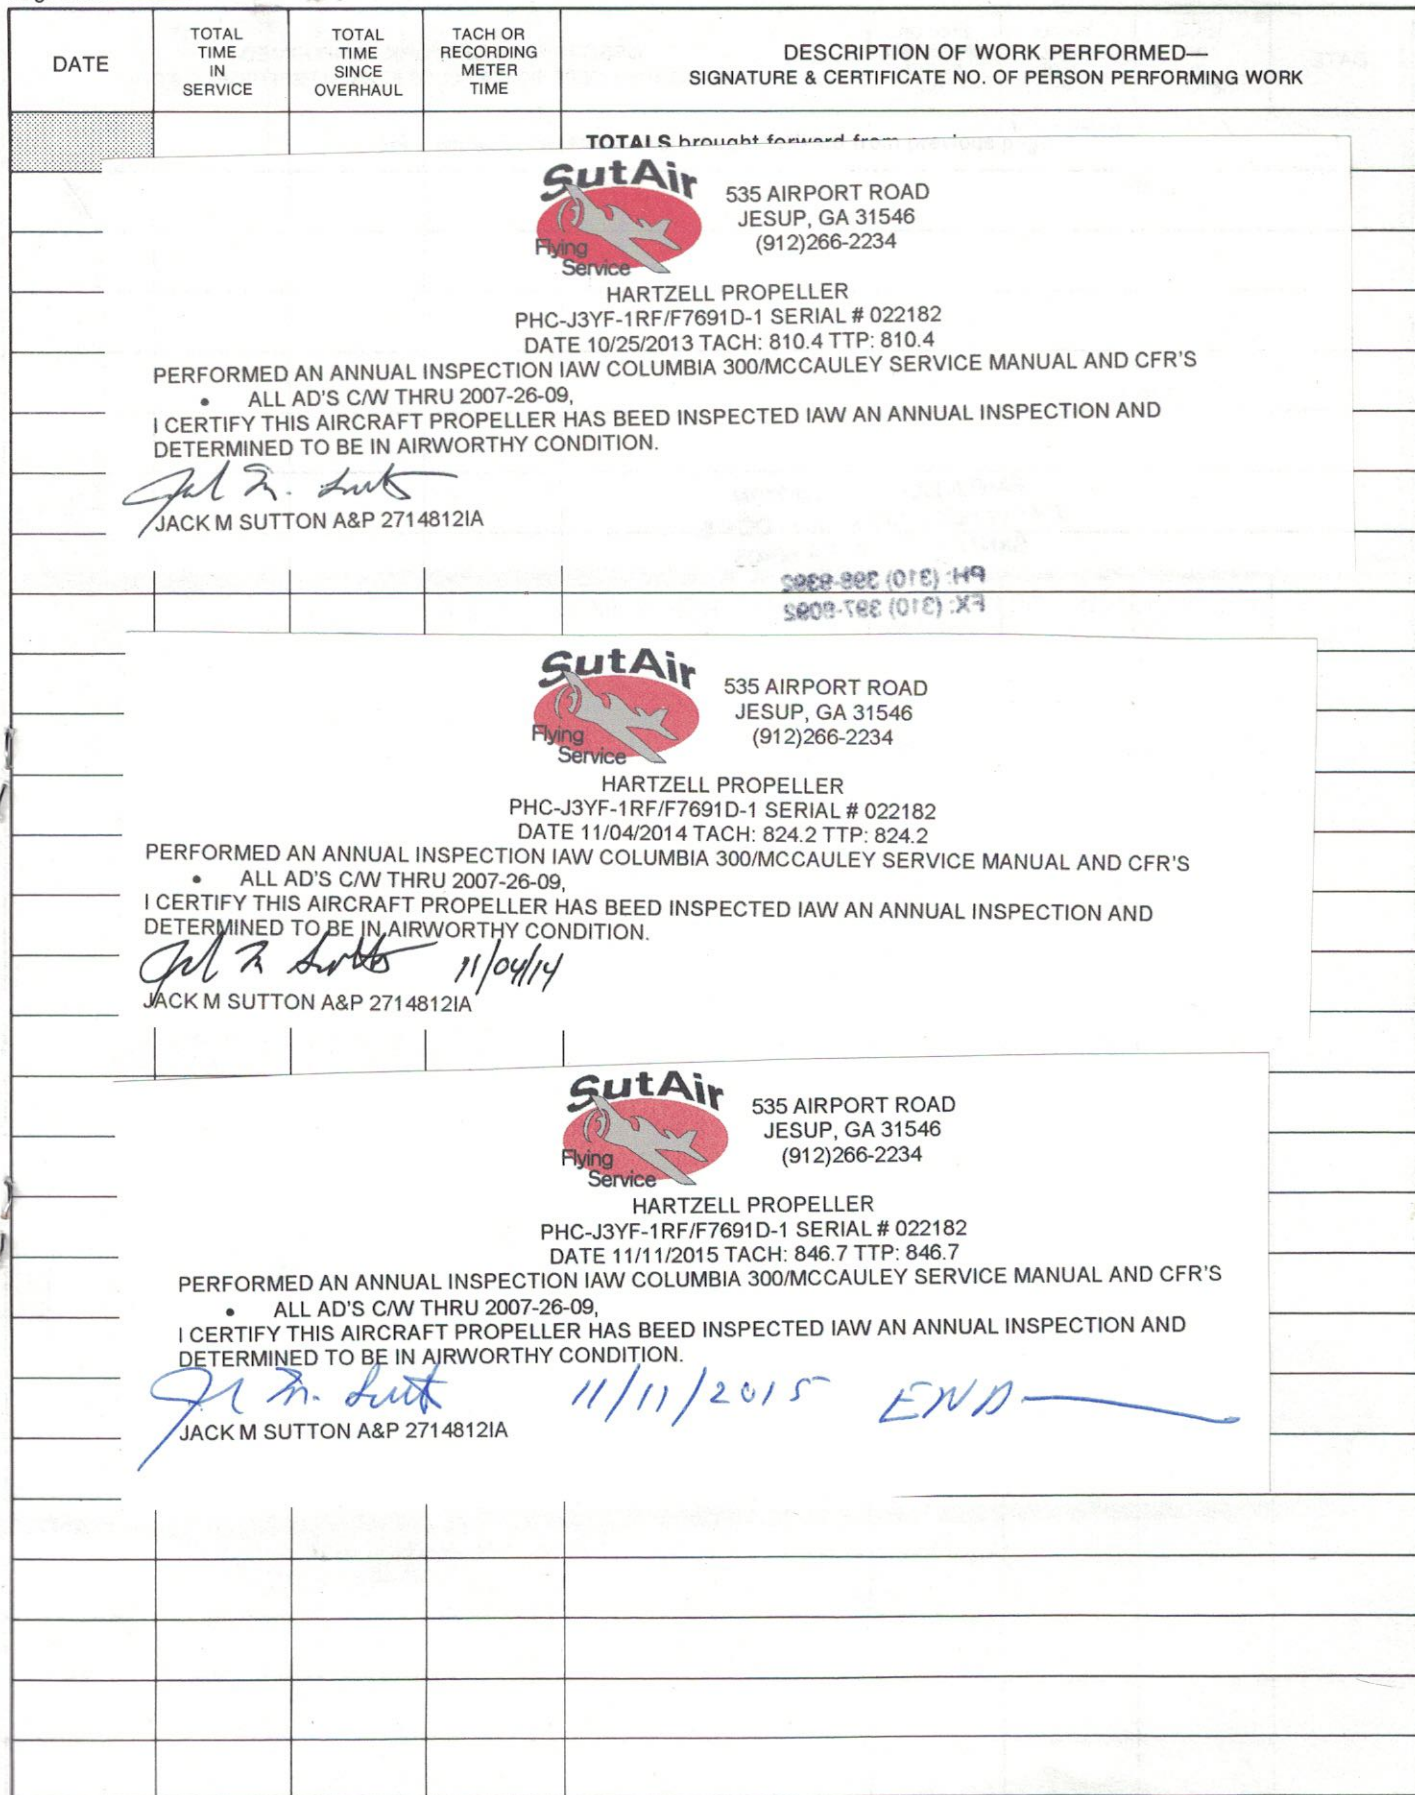 DATE
TOTAL TIME IN SERVICE
TOTAL TIME SINCE OVERHAUL
TACH OR RECORDING METER TIME
DESCRIPTION OF WORK PERFORMED—
SIGNATURE & CERTIFICATE NO. OF PERSON PERFORMING WORK
TOTALS brought forward from previous page
SutAir
Flying
Service
535 AIRPORT ROAD
JESUP, GA 31546
(912)266-2234
HARTZELL PROPELLER
PHC-J3YF-1RF/F7691D-1 SERIAL # 022182
DATE 10/25/2013 TACH: 810.4 TTP: 810.4
PERFORMED AN ANNUAL INSPECTION IAW COLUMBIA 300/MCCAULEY SERVICE MANUAL AND CFR'S
• ALL AD'S C/W THRU 2007-26-09,
I CERTIFY THIS AIRCRAFT PROPELLER HAS BEED INSPECTED IAW AN ANNUAL INSPECTION AND
DETERMINED TO BE IN AIRWORTHY CONDITION.
JACK M SUTTON A&P 2714812IA
PH: (310) 398-9392
FX: (310) 397-8092
SutAir
Flying
Service
535 AIRPORT ROAD
JESUP, GA 31546
(912)266-2234
HARTZELL PROPELLER
PHC-J3YF-1RF/F7691D-1 SERIAL # 022182
DATE 11/04/2014 TACH: 824.2 TTP: 824.2
PERFORMED AN ANNUAL INSPECTION IAW COLUMBIA 300/MCCAULEY SERVICE MANUAL AND CFR'S
• ALL AD'S C/W THRU 2007-26-09,
I CERTIFY THIS AIRCRAFT PROPELLER HAS BEED INSPECTED IAW AN ANNUAL INSPECTION AND
DETERMINED TO BE IN AIRWORTHY CONDITION.
11/04/14
JACK M SUTTON A&P 2714812IA
SutAir
Flying
Service
535 AIRPORT ROAD
JESUP, GA 31546
(912)266-2234
HARTZELL PROPELLER
PHC-J3YF-1RF/F7691D-1 SERIAL # 022182
DATE 11/11/2015 TACH: 846.7 TTP: 846.7
PERFORMED AN ANNUAL INSPECTION IAW COLUMBIA 300/MCCAULEY SERVICE MANUAL AND CFR'S
• ALL AD'S C/W THRU 2007-26-09,
I CERTIFY THIS AIRCRAFT PROPELLER HAS BEED INSPECTED IAW AN ANNUAL INSPECTION AND
DETERMINED TO BE IN AIRWORTHY CONDITION.
11/11/2015 END
JACK M SUTTON A&P 2714812IA